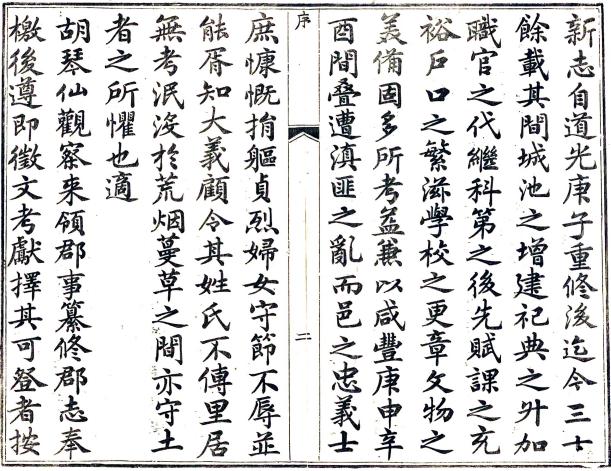 新志自道光庚子重修後迄今三十
餘載其間城池之增建祀典之升加
職官之代繼科第之後先賦課之充
裕戶口之繁滋學校之更章文物之
美備固多所考益兼以咸豐庚申辛
酉間叠遭滇匪之亂而邑之忠義士
序
二
庶慷慨捐軀貞烈婦女守節不辱並
能胥知大義顧令其姓氏不傳里居
無考泯沒於荒烟蔓草之間亦守土
者之所懼也適
胡琴仙觀察来領郡事纂修郡志奉
檄後遵即徵文考獻擇其可登者按